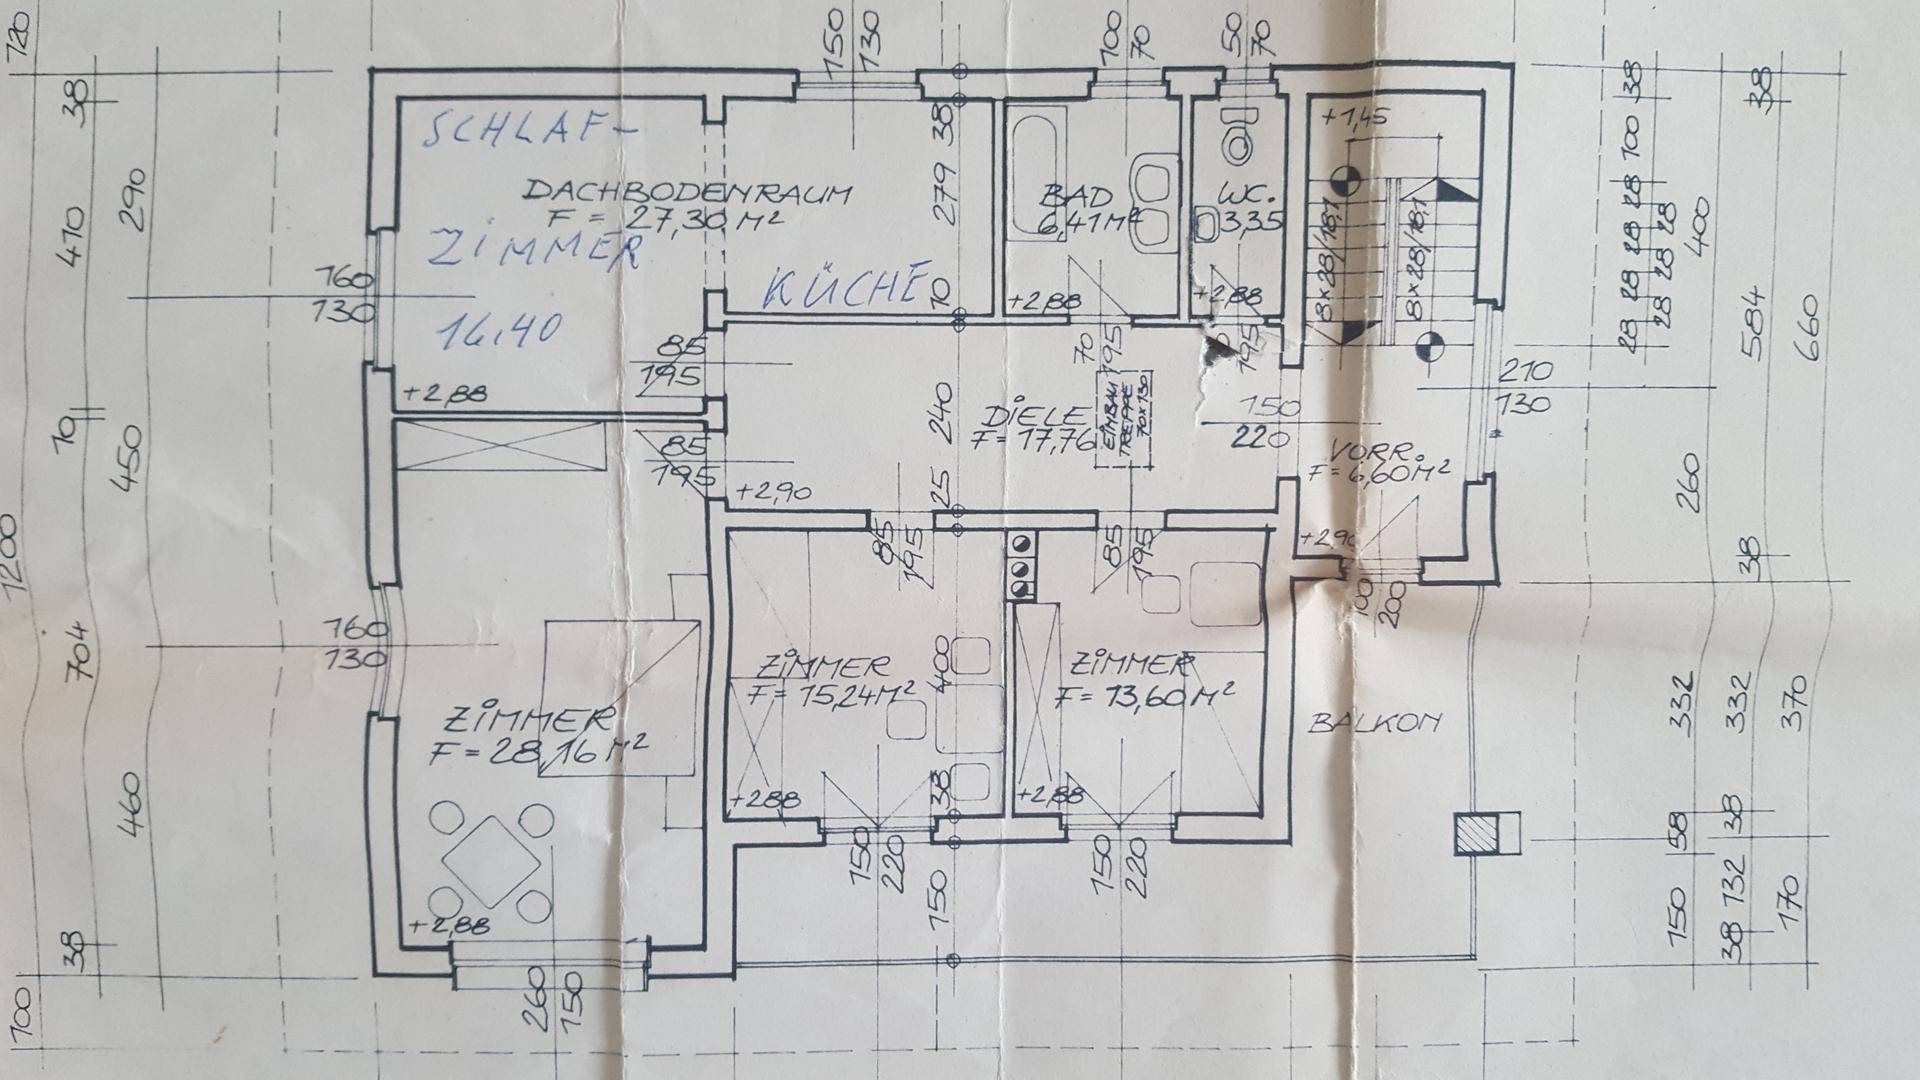 720
38
410
290
10
450
1200
704
460
38
100
150
130
100
70
50
70
SCHLAF-
DACHBODENRAUM
F = 27,30 M²
ZIMMER
16,40
+2,88
KÜCHE
38
279
10
BAD
6,41 M²
+2,88
WC.
3,35
+2,88
+1,45
8×28/18,1
8×28/18,1
160
130
85
195
85
195
70
195
195
240
DIELE
F = 17,76
EINBAU
TREPPE
70×130
150
220
VORR.
F = 6,60 M²
+2,90
210
130
+2,90
25
85
195
85
195
100
200
160
130
ZIMMER
F = 28,16 M²
+2,88
ZIMMER
F = 15,24 M²
+2,88
400
38
ZIMMER
F = 13,60 M²
+2,88
BALKON
150
220
150
150
220
260
150
38
100
28
28
28
28
28
28
28
400
260
38
584
38
660
332
332
370
58
38
150
132
38
170